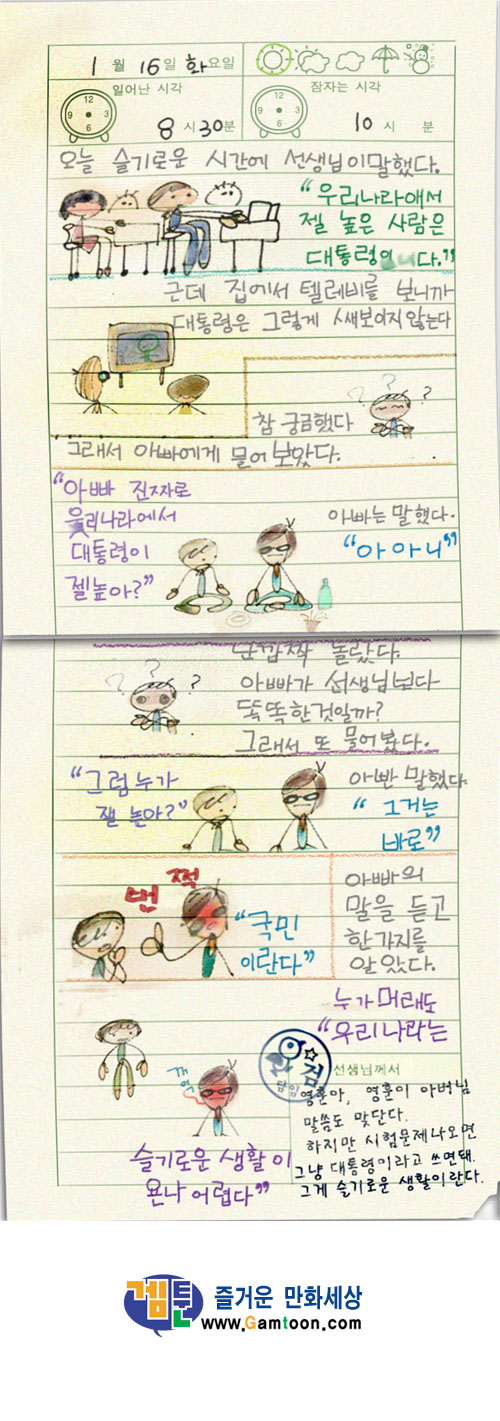 1월 16일 화요일
일어난 시각
잠자는 시각
12
3
6
9
8시 30분
12
3
6
9
10시 분
오늘 슬기로운 시간에 선생님이 말했다.
"우리나라에서
젤 높은 사람은
대통령이니다."
근데 집에서 텔레비를 보니까
대통령은 그렇게 쌔보이지 않는다
? ? ?
참 궁금했다
그래서 아빠에게 물어 보았다.
"아빠 진짜로
우리나라에서
대통령이
젤높아?"
아빠는 말했다.
"아아니"
난깜짝 놀랐다.
? ? ?
아빠가 선생님보다
똑똑한것일까?
그래서 또 물어봤다.
"그럼누가
잴 높아?"
아빤 말했다
"그거는
바로"
번쩍
"국민
이란다"
아빠의
말을 듣고
한가지를
알았다.
누가머래도
"우리나라는
슬기로운 생활이
욘나어렵다"
선생님께서
영훈아, 영훈이 아버님
말씀도 맞단다.
하지만 시험문제나오면
그냥 대통령이라고 쓰면돼.
그게 슬기로운 생활이란다.
겜툰 즐거운 만화세상
www.Gamtoon.com